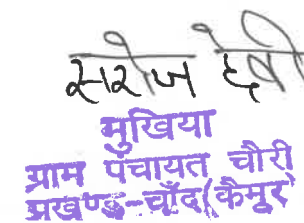 सरोज देवी
मुखिया
ग्राम पंचायत चौरी
प्रखण्ड-चाँद(कैमूर